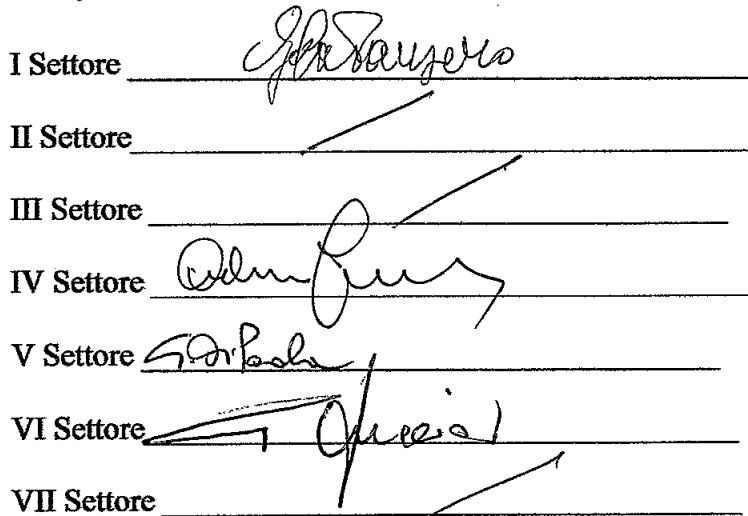 I Settore
II Settore
III Settore
IV Settore
V Settore G. Di Paola
VI Settore
VII Settore